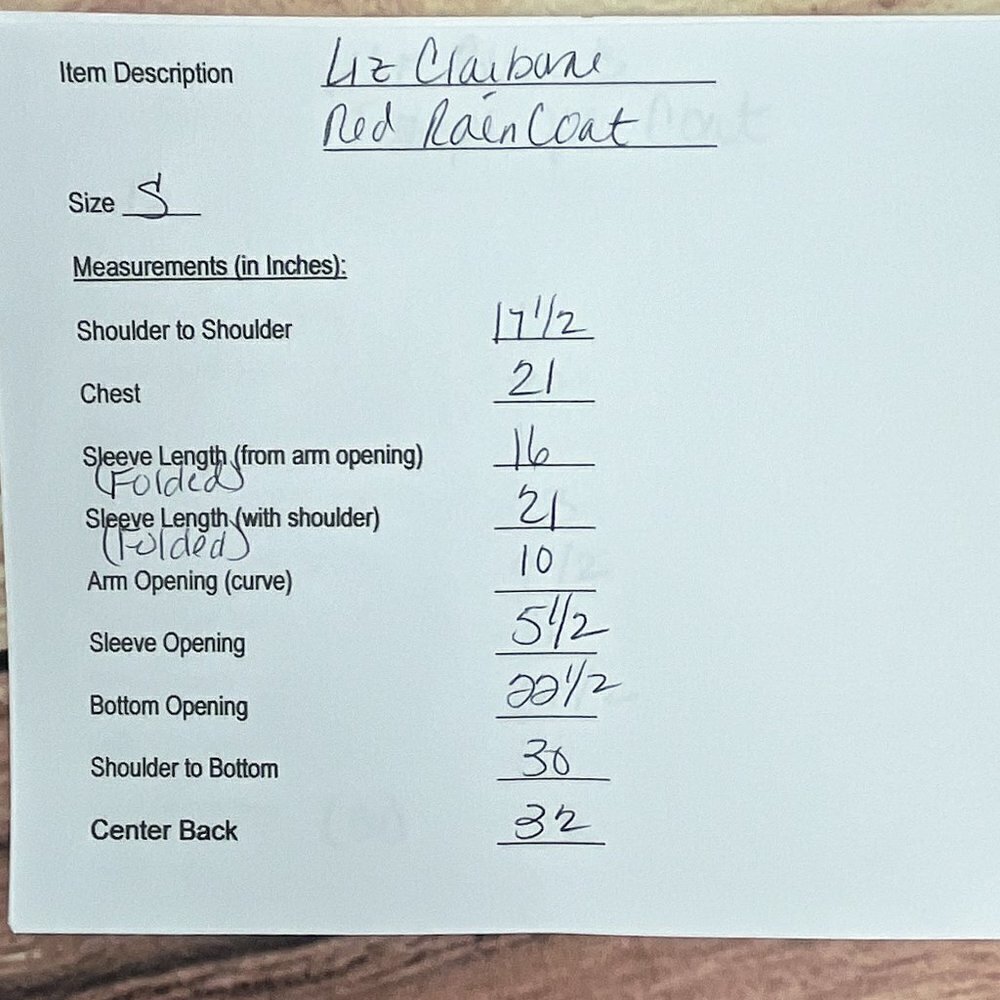 Item Description Liz Claiborne
Red Rain Coat
Size S
Measurements (in Inches):
Shoulder to Shoulder 17 1/2
Chest 21
Sleeve Length (from arm opening) 16
(Folded)
Sleeve Length (with shoulder) 21
(Folded)
Arm Opening (curve) 10
Sleeve Opening 5 1/2
Bottom Opening 22 1/2
Shoulder to Bottom 30
Center Back 32